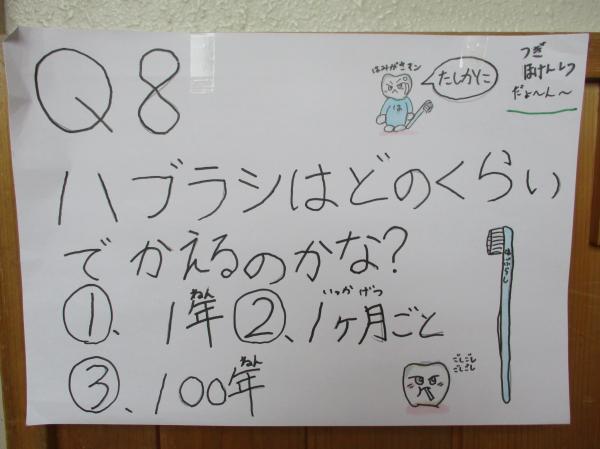 Q8
はみがきモン
たしかに
つぎ
ほけんしつ
だよ〜ん〜
は
ハブラシはどのくらい
でかえるのかな?
①、1年 ②、1ヶ月ごと
ねん いっか げつ
③、100年
ねん
はぶらし
ごしごし
ごしごし